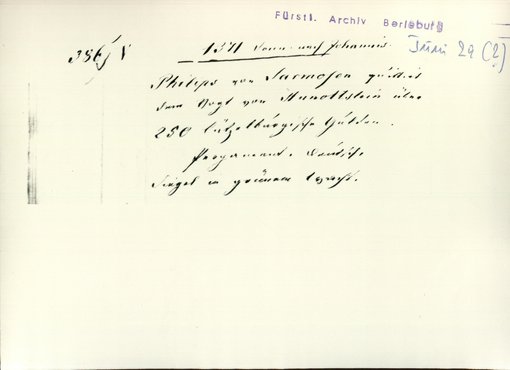 Fürstl. Archiv Berleburg
1371 Sonn. nach Johannis.
Juni 29 (?)
Philipps von quittirt
dem Vogt von über
250 lützelburgische Gulden.
Pergament. Deutsch.
Siegel in grünem Wachs.